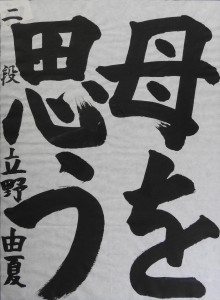 母を
思う
二段 立野由夏